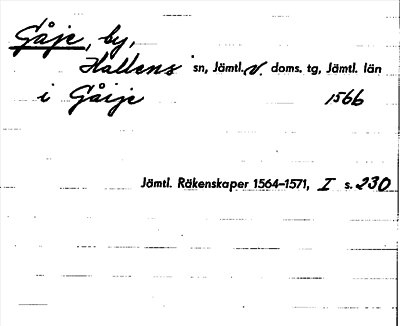 Gåje, by,
Hallens sn, Jämtl. v. doms. tg, Jämtl. län
i Gåije 1566
Jämtl. Räkenskaper 1564–1571, I s. 230